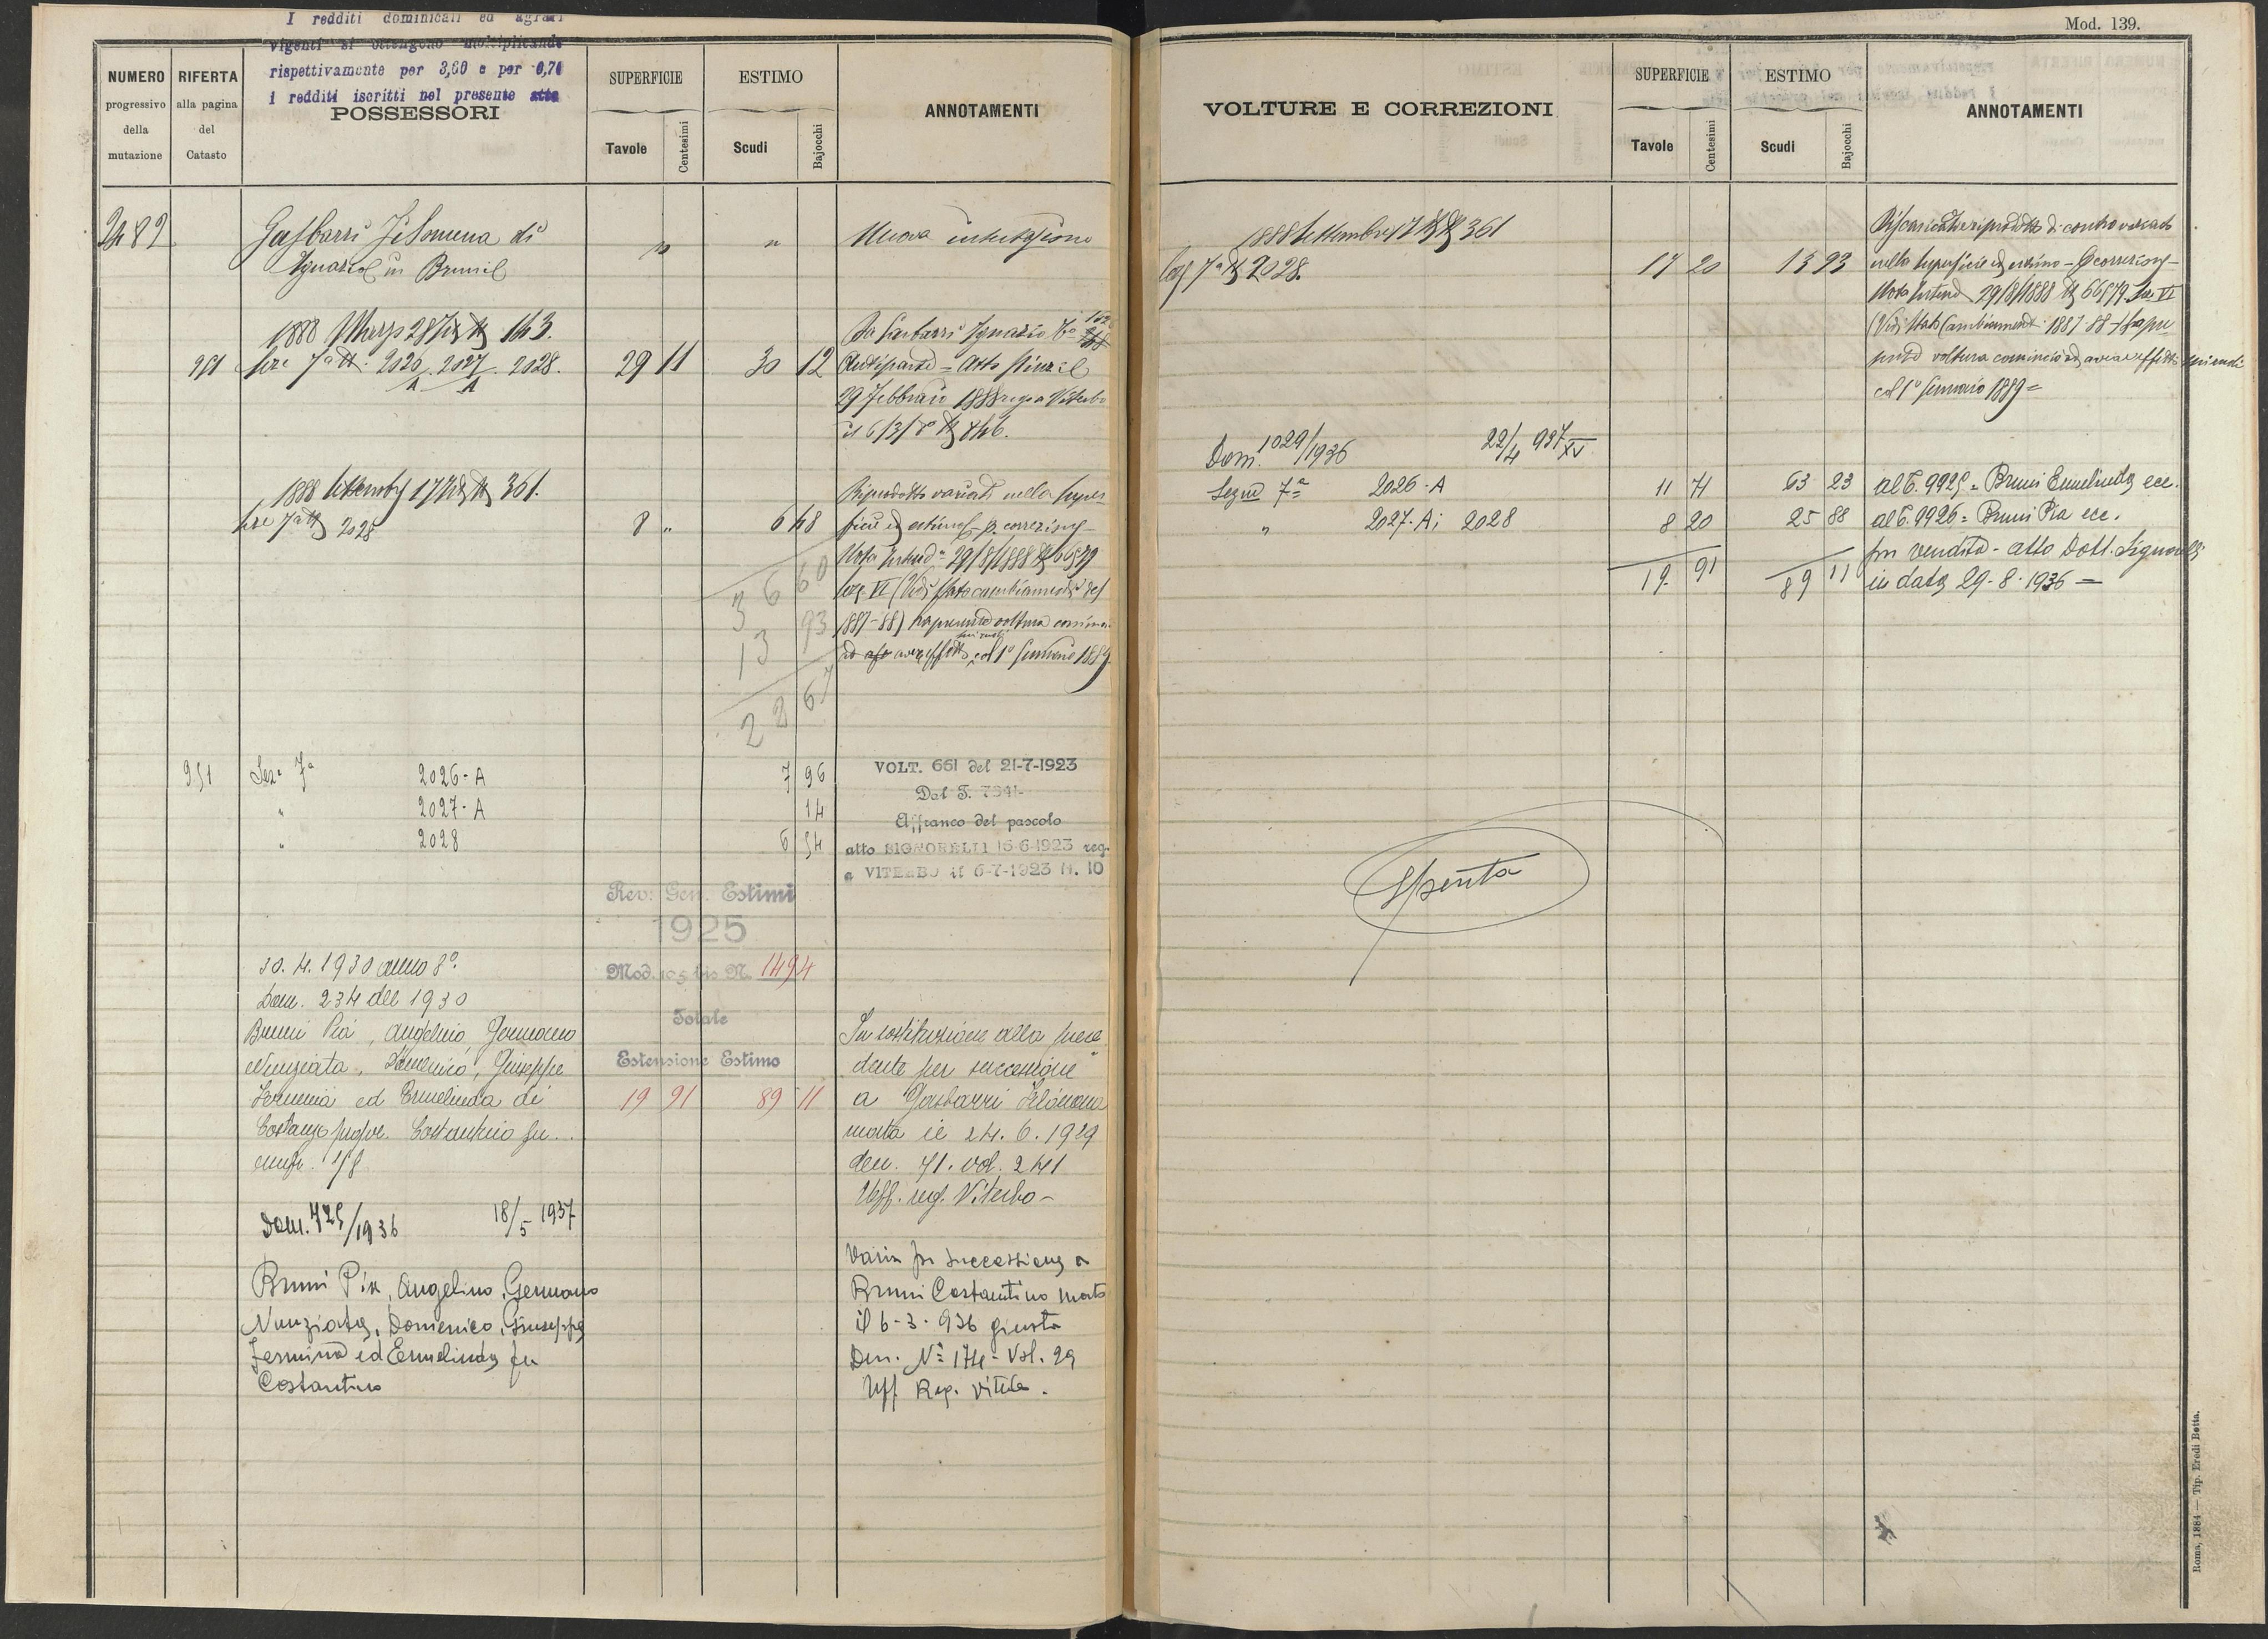 I redditi dominicali ed agrari
vigenti si ottengono moltiplicando
rispettivamente per 3,60 e per 0,70
i redditi iscritti nel presente atto
NUMERO progressivo della mutazione
RIFERTA alla pagina del Catasto
POSSESSORI
SUPERFICIE
Tavole
Centesimi
ESTIMO
Scudi
Bajocchi
ANNOTAMENTI
2482
Gasbarri Filomena di
Ignazio in Bruni
"
"
Nuova intestazione
1888 Marzo 28 163.
951
Sez 7a N. 2026/A 2027/A 2028.
29 11
30 12
Da Gasbarri Ignazio
Antiparte = Atto
29 Febbraio 1888 reg a Viterbo
il 6/3/
1888 Settembre 17 N 361.
Sez 7a N 2028
8 "
6 48
Riprodotto variato nella super
ficie ed estimo p. correzione
Nota Intend. 29/8/1888 N 66579
Sez VI (Vedi Stato cambiamenti del
1887-88) la presente voltura
avere effetto col 1° Gennaio 1889.
36 60
13 93
22 67
951
Sez. 7a 2026-A
7 96
" 2027-A
14
" 2028
6 54
VOLT. 661 del 21-7-1923
Dal T. 7341-
Affranco del pascolo
atto SIGNORELLI 15-6-1923 reg.
a VITERBO il 6-7-1923 N. 10
Rev: Gen. Estimi
1925
Mod. 105 bis N. 1494
Totale
Estensione Estimo
19 91
89 11
30. 4. 1930 anno 8°.
Dom. 234 del 1930
Bruni Pia, Angelino, Germano
Nunziata, Domenico, Giuseppe
Fermina ed Ermelinda di
Costanzo propr. Costantino fu
usufr. 1/8
In sostituzione alla prece
dente per successione
a Gasbarri Filomena
morta il 24. 6. 1929
den. 71. vol. 241
Uff. reg. Viterbo -
Dom. 725/1936 18/5 1937
Bruni Pia, Angelino, Germano
Nunziata, Domenico, Giuseppe
Fermina ed Ermelinda fu
Costantino
Varia per successione a
Bruni Costantino morto
il 6-3-936 giusta
Den. N° 174 - Vol. 29
Uff Reg. Viterbo.
Mod. 139.
VOLTURE E CORREZIONI
SUPERFICIE
Tavole
Centesimi
ESTIMO
Scudi
Bajocchi
ANNOTAMENTI
1888 Settembre 17 N 361
Sez 7a N 2028.
17 20
13 93
riprodotto di contro variato
nella superficie ed estimo - p. correzione -
Nota Intend 29/8/1888 N 66579 Sez VI
(Vedi Stato Cambiamenti 1887-88) la pre
sente voltura comincia ad avere effetto sui ruoli
col 1° Gennaio 1889 =
Dom. 1029/1936 22/4 937 XV
Sezne 7a 2026-A
11 71
63 23
al T. 9925 = Bruni Ermelinda ecc.
" 2027-A; 2028
8 20
25 88
al T. 9926 = Bruni Pia ecc.
19 91
89 11
per vendita - atto Dott. Signorelli
in data 29-8-1936 =
Spenta
Roma, 1884 — Tip. Eredi Botta.